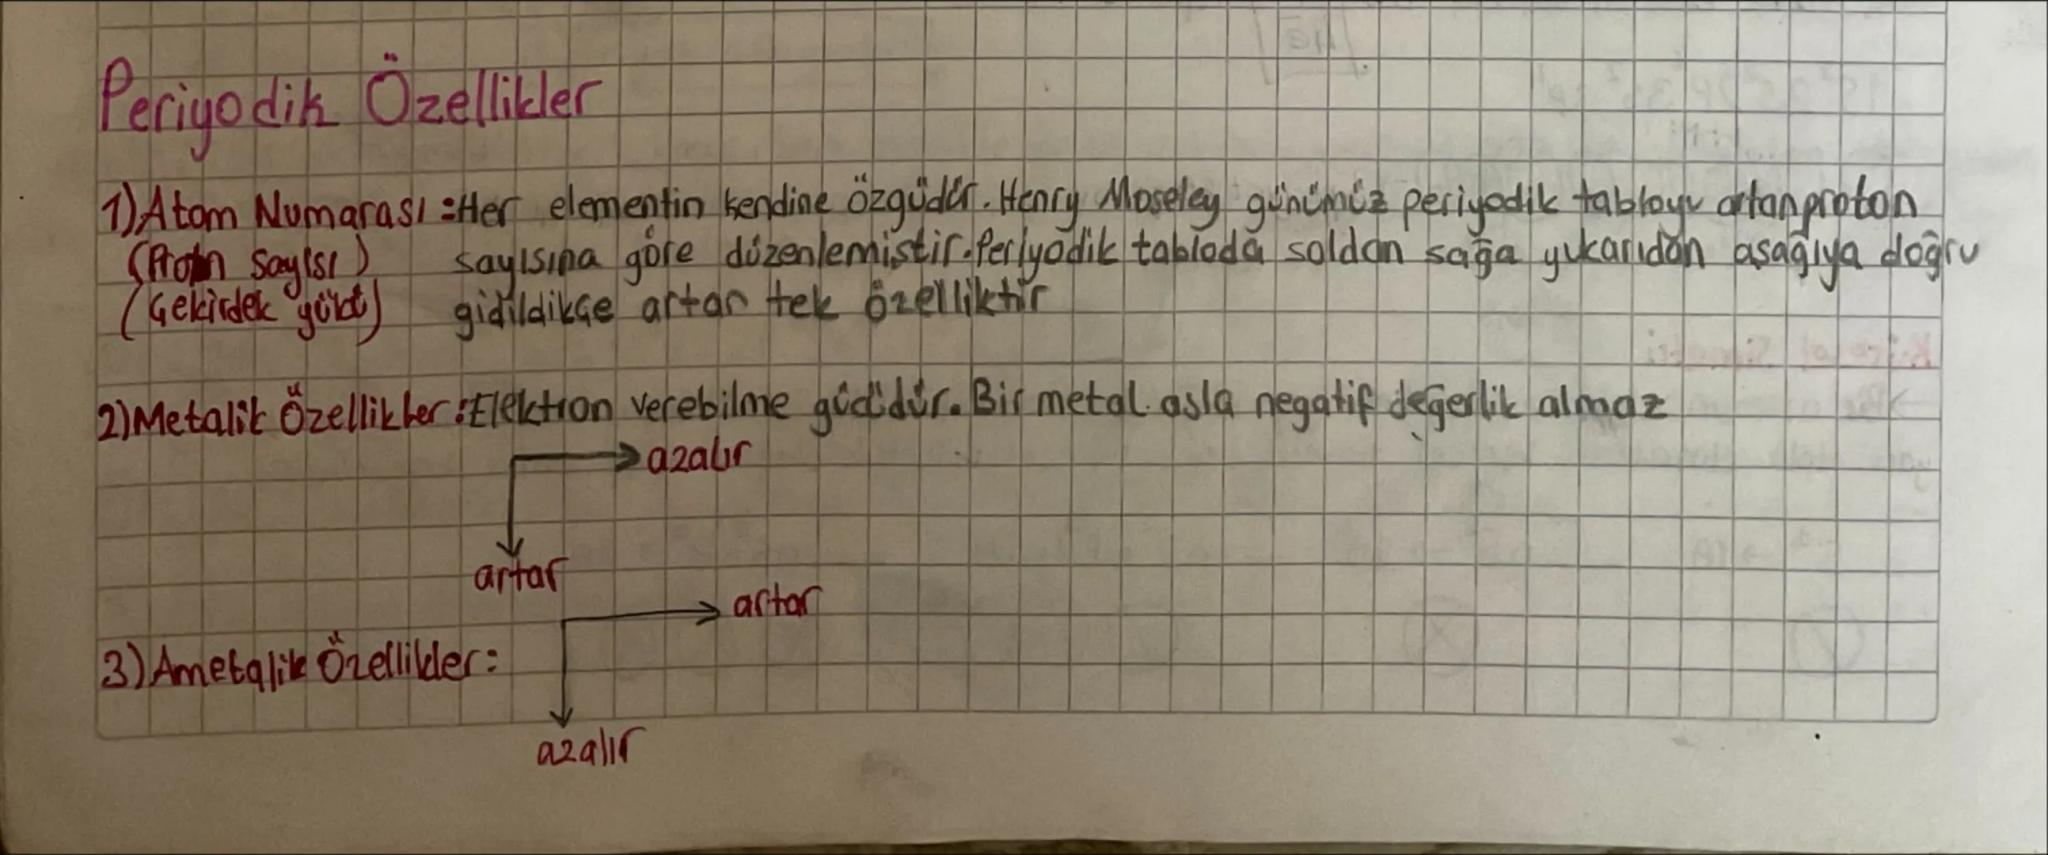 Periyodik Özellikler
1) Atom Numarası : Her elementin kendine özgüdür. Henry Moseley günümüz periyodik tabloyu artan proton
(Protn sayısı) sayısına göre düzenlemistir. Periyodik tabloda soldan sağa yukarıdan asağıya doğru
(Çekirdek yükü) gidildikçe artan tek özelliktir
2) Metalik Özellikler : Elektron verebilme gücüdür. Bir metal asla negatif değerlik almaz
azalır
artar
artar
3) Ametalik Özellikler :
azalır